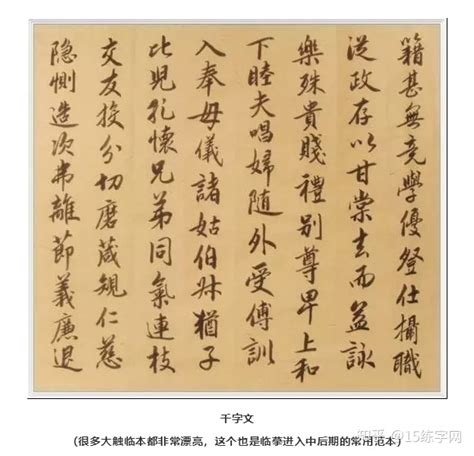 籍甚無竟學優登仕攝職
從政存以甘棠去而益詠
樂殊貴賤禮別尊卑上和
下睦夫唱婦随外受傅訓
入奉母儀諸姑伯叔猶子
比兒孔懷兄弟同氣連枝
交友投分切磨箴規仁慈
隐惻造次弗離節義廉退
千字文
(很多大触临本都非常漂亮，这个也是临摹进入中后期的常用范本)
知乎 @15练字网